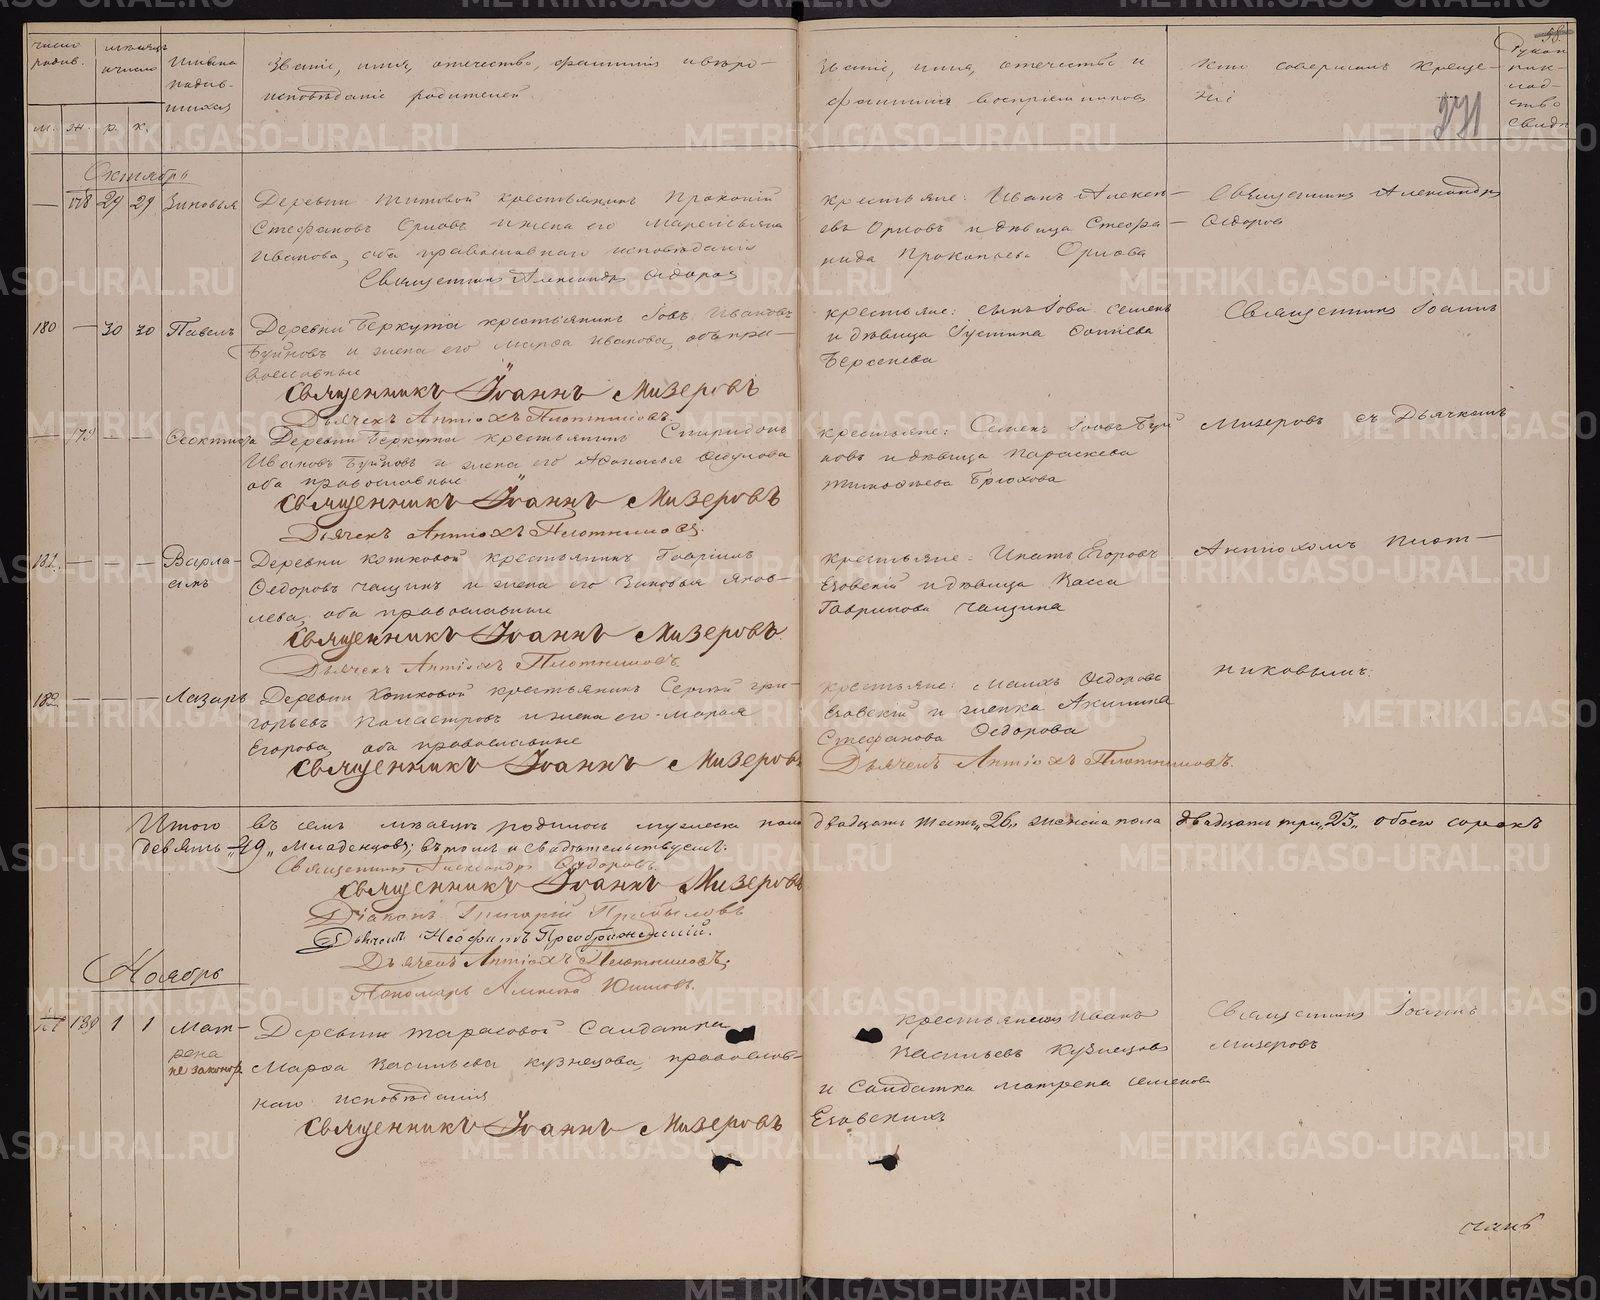 число родив.
мѣсяцъ и число
Имена родив-
шихся
Званіе, имя, отечество, фамилія и вѣро-
исповѣданіе родителей.
Званіе, имя, отечество и
фамилія воспріемниковъ
Кто совершалъ креще-
ніе
Рукоп
ство
свидѣ
м. ж. р. к.
271
Октябрь
— 178 29 29 Зиновья
Деревни Титовой крестьянинъ Прокопій
Стефановъ Орловъ и жена его
Иванова, оба православнаго исповѣданія
Священникъ Александръ Ѳедоровъ
крестьяне: Иванъ Алексѣ-
евъ Орловъ и дѣвица Стефа-
нида Прокопьева Орлова
Священникъ Александръ
Ѳедоровъ
180 — 30 30 Павелъ
Деревни Беркутъ крестьянинъ Іовъ Ивановъ
Буйновъ и жена его Марѳа Иванова, оба пра-
вославные
Священникъ Іоаннъ Мизеровъ
Дьячекъ Антіохъ Плотниковъ
крестьяне: сынъ Іова Семенъ
и дѣвица Іустина
Берсенева
Священникъ Іоаннъ
— 179 — — Ѳеоктиста
Деревни Беркутъ крестьянинъ Спиридонъ
Ивановъ Буйновъ и жена его Аѳанасья Ѳедулова
оба православные
Священникъ Іоаннъ Мизеровъ
Дьячекъ Антіохъ Плотниковъ.
крестьяне: Семенъ Іовъ Буй
новъ и дѣвица Параскева
Тимофѣева Брюхова
Мизеровъ съ Дьячкомъ
181. — — — Варла-
амъ
Деревни Котковой крестьянинъ Гавріилъ
Ѳедоровъ Чащинъ и жена его Зиновья Яков-
лева, оба православные
Священникъ Іоаннъ Мизеровъ.
Дьячекъ Антіохъ Плотниковъ
крестьяне: Игнатъ Егоровъ
Езовскій и дѣвица Васса
Гаврилова Чащина
Антіохомъ Плот-
182. — — — Лазарь
Деревни Котковой крестьянинъ Сергій Гри-
горьевъ и жена его Марѳа
Егорова, оба православные
Священникъ Іоаннъ Мизеровъ
крестьяне: Ѳедоровъ
Езовскій и женка Акилина
Стефанова Ѳедорова
Дьячекъ Антіохъ Плотниковъ.
никовымъ.
Итого въ семъ мѣсяцѣ родилось мужеска пола двадцать шесть „26„ женска пола двадцать три „23„ обоего сорокъ
девять „49„ младенцовъ; въ томъ и свидѣтельствуемъ:
Священникъ Александръ Ѳедоровъ.
Священникъ Іоаннъ Мизеровъ
Діаконъ Григорій
Дьячекъ Неофитъ Преображенскій.
Дьячекъ Антіохъ Плотниковъ.
Пономарь
Ноябрь
1 1 Мат-
рена
незаконор.
Деревни Тарасовой Солдатка
Марѳа Васильева Кузнецова, православ-
наго исповѣданія
Священникъ Іоаннъ Мизеровъ
крестьянинъ Иванъ
Васильевъ Кузнецовъ
и Солдатка Матрена Семенова
Езовскихъ
Священникъ Іоаннъ
Мизеровъ
METRIKI.GASO-URAL.RU